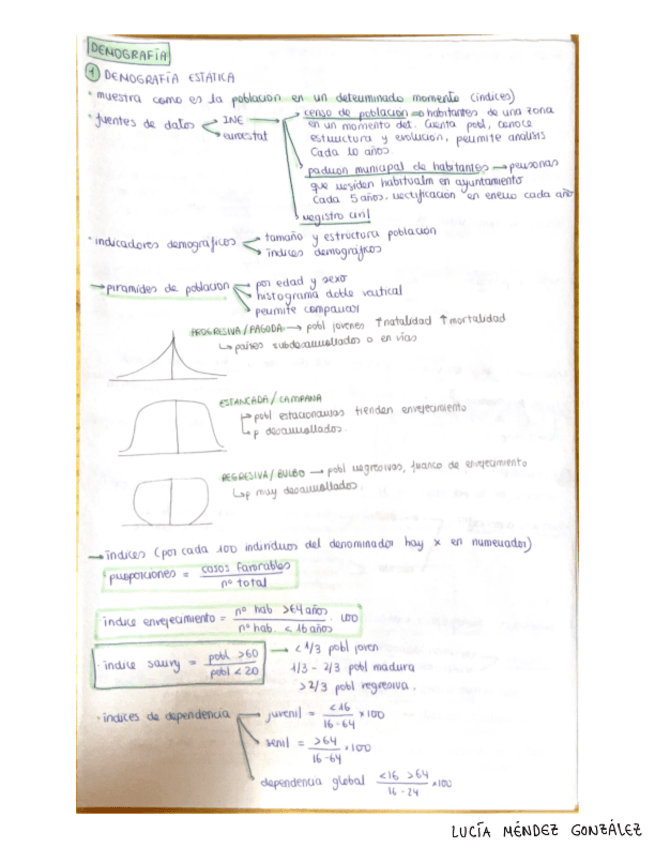 DEMOGRAFÍA
1 DEMOGRAFÍA ESTÁTICA
· muestra como es la población en un determinado momento (índices)
· fuentes de datos
INE
eurostat
censo de población ⇒ habitantes de una zona
en un momento det. Cuenta pobl, conoce
estructura y evolución, permite análisis
Cada 10 años.
padrón municipal de habitantes → personas
que residen habitualm en ayuntamiento
Cada 5 años. rectificación en enero cada año
registro civil
· indicadores demográficos
tamaño y estructura población
índices demográficos
→ pirámides de población
por edad y sexo
histograma doble vertical
permite comparar
PROGRESIVA / PAGODA → pobl jovenes ↑natalidad ↑mortalidad
↳ países subdesarrollados o en vías
ESTANCADA / CAMPANA
↳ pobl estacionarias tienden envejecimiento
↳ p desarrollados.
REGRESIVA / BULBO → pobl regresivas, franco de envejecimiento
↳ p muy desarrollados.
→ índices (por cada 100 individuos del denominador hay x en numerador)
proporciones = casos favorables / nº total
índice envejecimiento = nº hab >64 años / nº hab. < 16 años · 100
· índice sauvy = pobl >60 / pobl < 20
→ < 1/3 pobl joven
1/3 - 2/3 pobl madura
> 2/3 pobl regresiva.
· índices de dependencia
juvenil = <16 / 16-64 × 100
senil = >64 / 16-64 × 100
dependencia global <16 >64 / 16-24 × 100
LUCÍA MÉNDEZ GONZÁLEZ